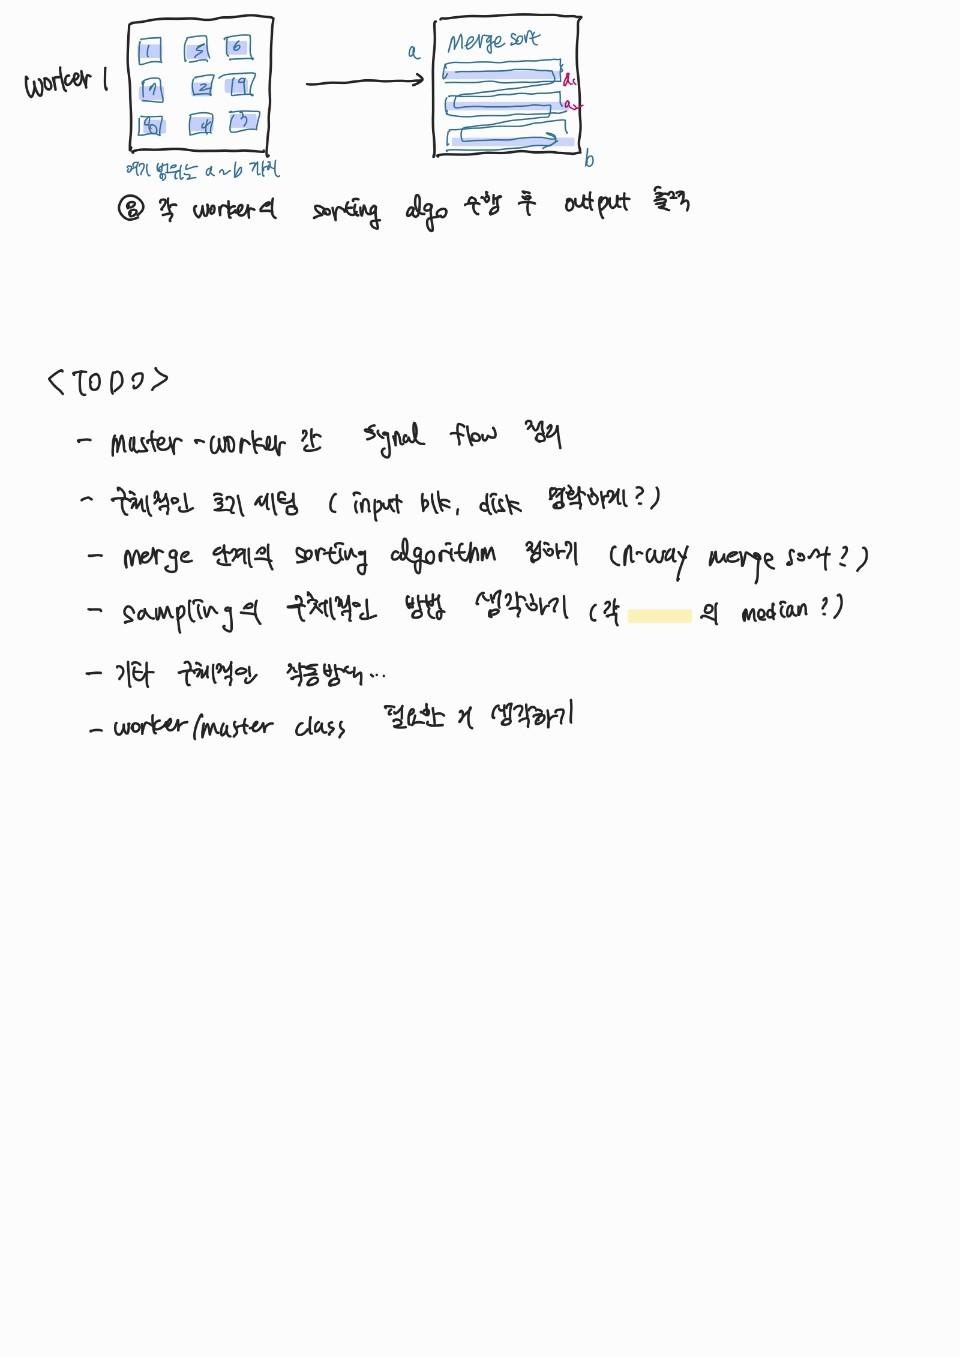 worker 1
1 5 6
17 2 19
8 4 13
여기 범위는 a~b 까지
a
Merge sort
a₁
a₂
b
⑧ 각 worker의 sorting algo 수행 후 output 출력
<TODO>
- Master-worker 간 signal flow 정리
- 구체적인 초기 세팅 ( input blk, disk 명확하게? )
- merge 단계의 sorting algorithm 정하기 (n-way merge sort?)
- sampling의 구체적인 방법 생각하기 (각 의 median?)
- 기타 구체적인 작동방식...
- worker/master class 필요한 거 생각하기